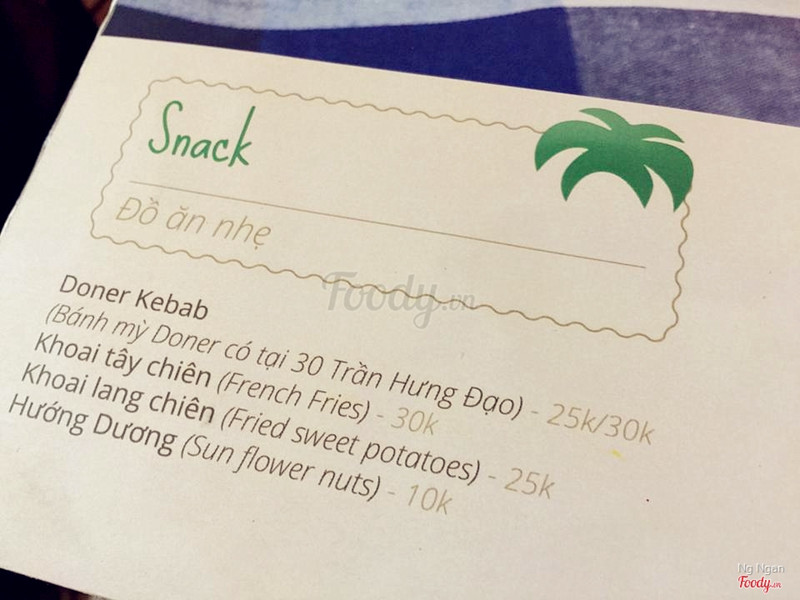 Snack
Đồ ăn nhẹ
Foody.vn
Doner Kebab
(Bánh mỳ Doner có tại 30 Trần Hưng Đạo) - 25k/30k
Khoai tây chiên (French Fries) - 30k
Khoai lang chiên (Fried sweet potatoes) - 25k
Hướng Dương (Sun flower nuts) - 10k
Ng Ngan
Foody.vn